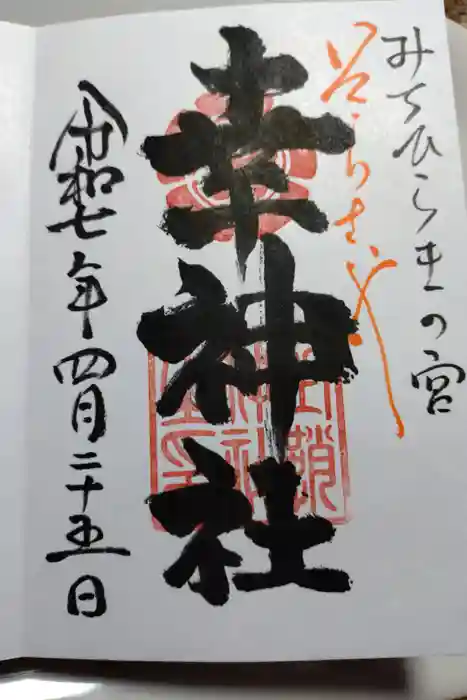 みちひらきの宮
幸神社
令和七年四月二十五日